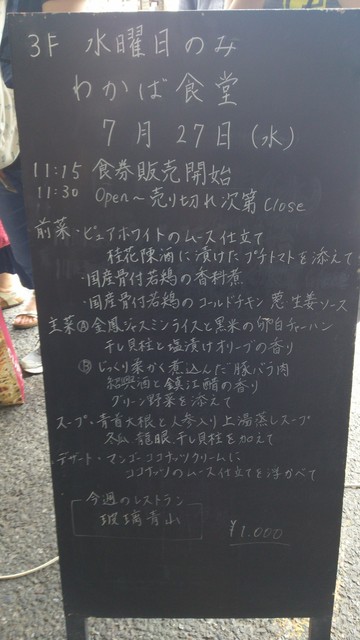 3F 水曜日のみ
わかば食堂
7月27日(水)
11:15 食券販売開始
11:30 Open〜売り切れ次第Close
前菜・ピュアホワイトのムース仕立て
桂花陳酒に漬けたプチトマトを添えて
・国産骨付若鶏の香料煮
・国産骨付若鶏のコールドチキン 葱生姜ソース
主菜Ⓐ金鳳ジャスミンライスと黒米の卵白チャーハン
干し貝柱と塩漬けオリーブの香り
Ⓑじっくり柔かく煮込んだ豚バラ肉
紹興酒と鎮江醋の香り
グリーン野菜を添えて
スープ・青首大根と人参入り上湯蒸しスープ
龍眼 干し貝柱を加えて
デザート・マンゴーココナッツクリームに
ココナッツのムース仕立てを浮かべて
今週のレストラン
玻璃青山
¥1.000